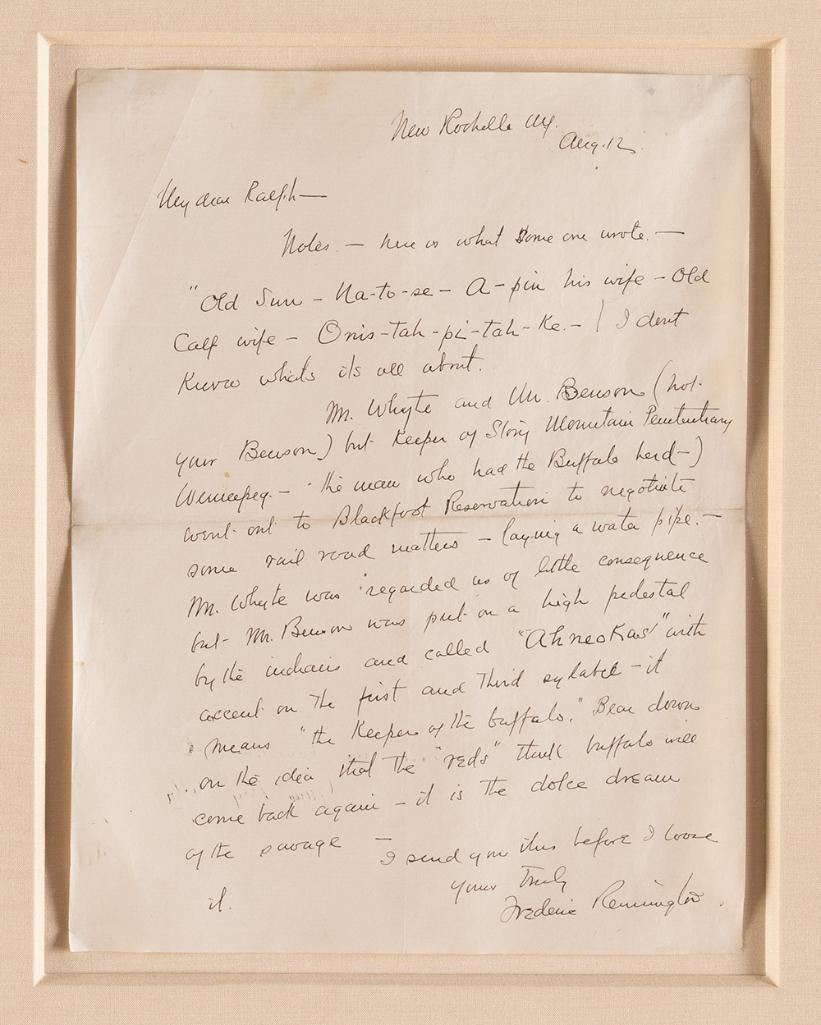 New Rochelle NY.
Aug. 12
My dear Ralph—
Notes. — here is what some one wrote. —
"Old Sun — Na-to-se — A-pin his wife — Old
Calf wife — Onis-tah-pi-tah-ke. — I dont
Know whats its all about.
Mr. Whyte and Mr. Benson (not
your Benson) but Keeper of Stony Mountain Penitentiary
Winnepeg. — the man who had the Buffalo herd —)
went out to Blackfoot Reservation to negotiate
some rail road matters — laying a water pipe. —
Mr. Whyte was regarded as of little consequence
but Mr. Benson was put on a high pedestal
by the indians and called "Ahneokas" with
accent on the first and third sylabel — it
means "the Keeper of the buffalo." Bear down
on the idea that the "reds" think buffalo will
come back again — it is the dolce dream
of the savage —
I send you this before I loose
it.
Yours Truly
Frederic Remington.